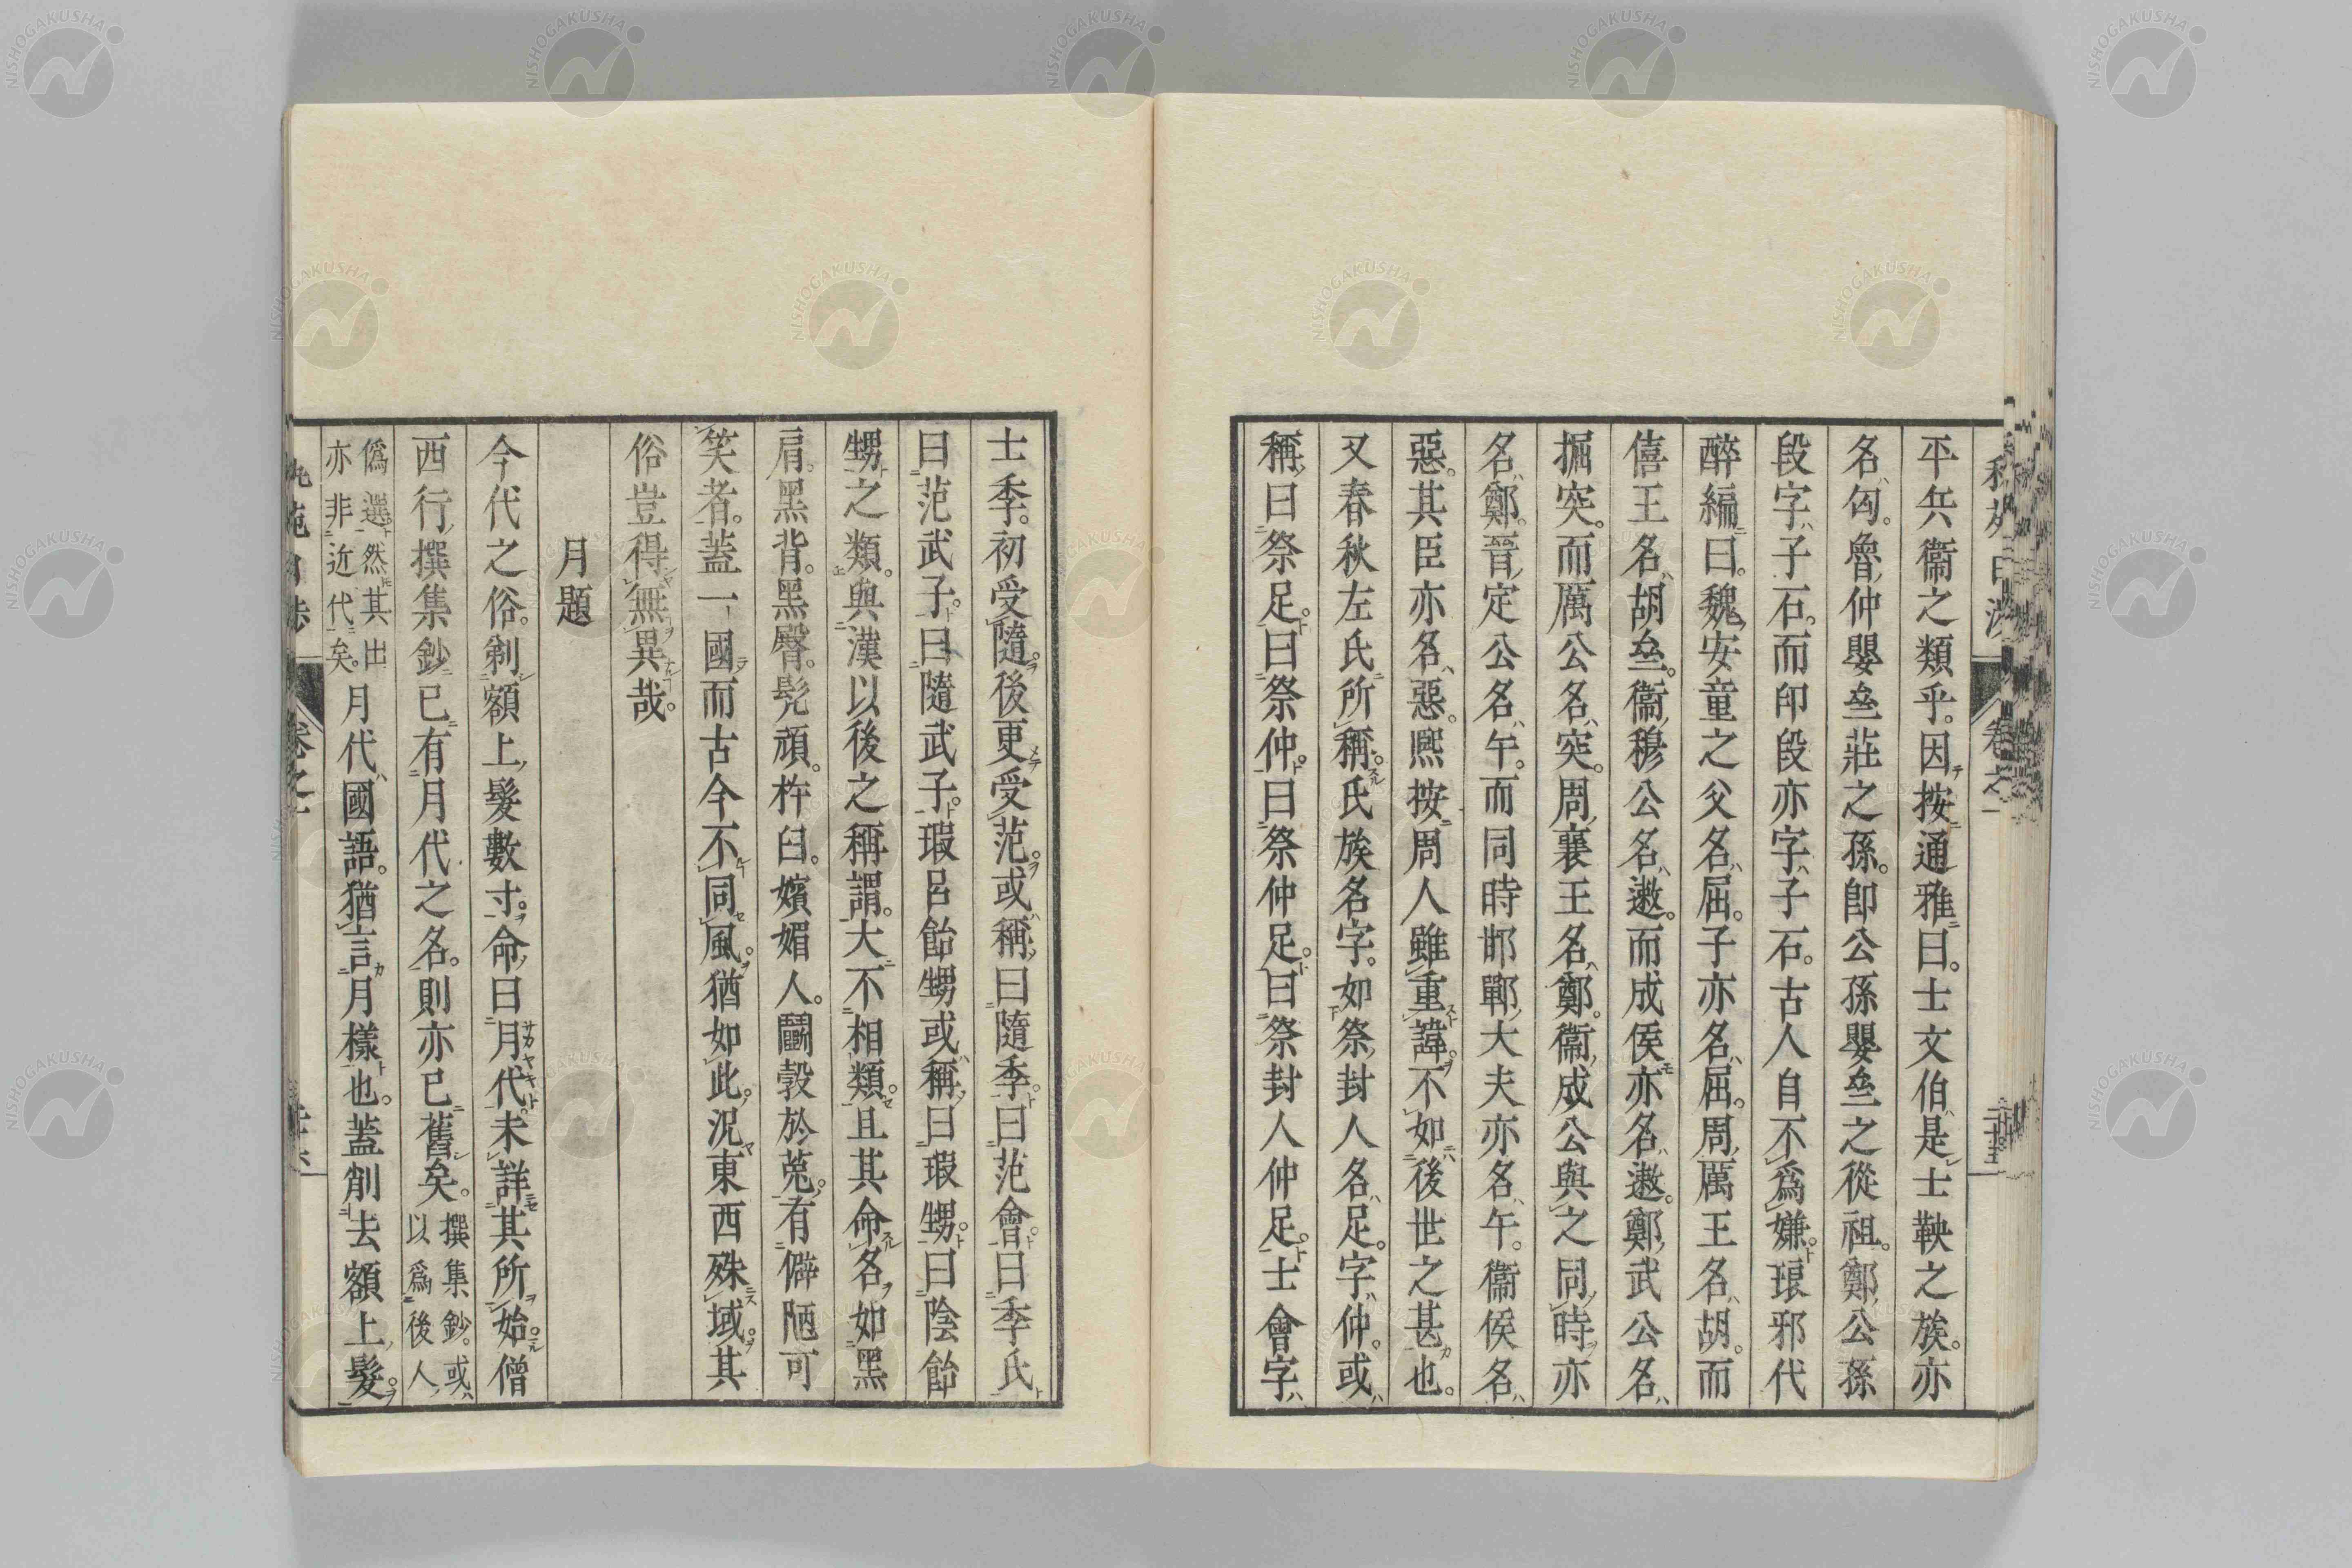 平兵衞之類乎。因按通雅曰。士文伯是士鞅之族。亦
名匃。魯仲嬰㚅莊之孫。卽公孫嬰㚅之從祖。鄭公孫
段字子石。而印段亦字子石。古人自不爲嫌。琅邪代
醉編曰。魏安童之父名屈。子亦名屈。周厲王名胡。而
僖王名胡㚅。衞穆公名遬。而成侯亦名遬。鄭武公名
掘突。而厲公名突。周襄王名鄭。衞成公與之同時亦
名鄭。晉定公名午。而同時邯鄲大夫亦名午。衞侯名
惡。其臣亦名惡。熈按周人雖重諱。不如後世之甚也。
又春秋左氏所稱。氏族名字。如祭封人名足。字仲。或
稱曰祭足。曰祭仲。曰祭仲足。曰祭封人仲足。士會字
士季。初受隨。後更受范。或稱曰隨季。曰范會。曰季氏
曰范武子。曰隨武子。瑕呂飴甥或稱曰瑕甥。曰陰飴
甥之類。與漢以後之稱謂。大不相類。且其命名如黑
肩。黑背。黑臀。髡頑。杵臼。嬪媚人。鬭穀於菟。有僻陋可
笑者。蓋一國而古今不同風。猶如此。況東西殊域。其
俗豈得無異哉。
月題
今代之俗。剃額上髮數寸。命曰月代。未詳其所始。僧
西行撰集鈔已有月代之名。則亦已舊矣。撰集鈔。或以爲後人
僞選。然其出亦非近代矣。月代國語。猶言月樣也。蓋削去額上髮。
卷之一